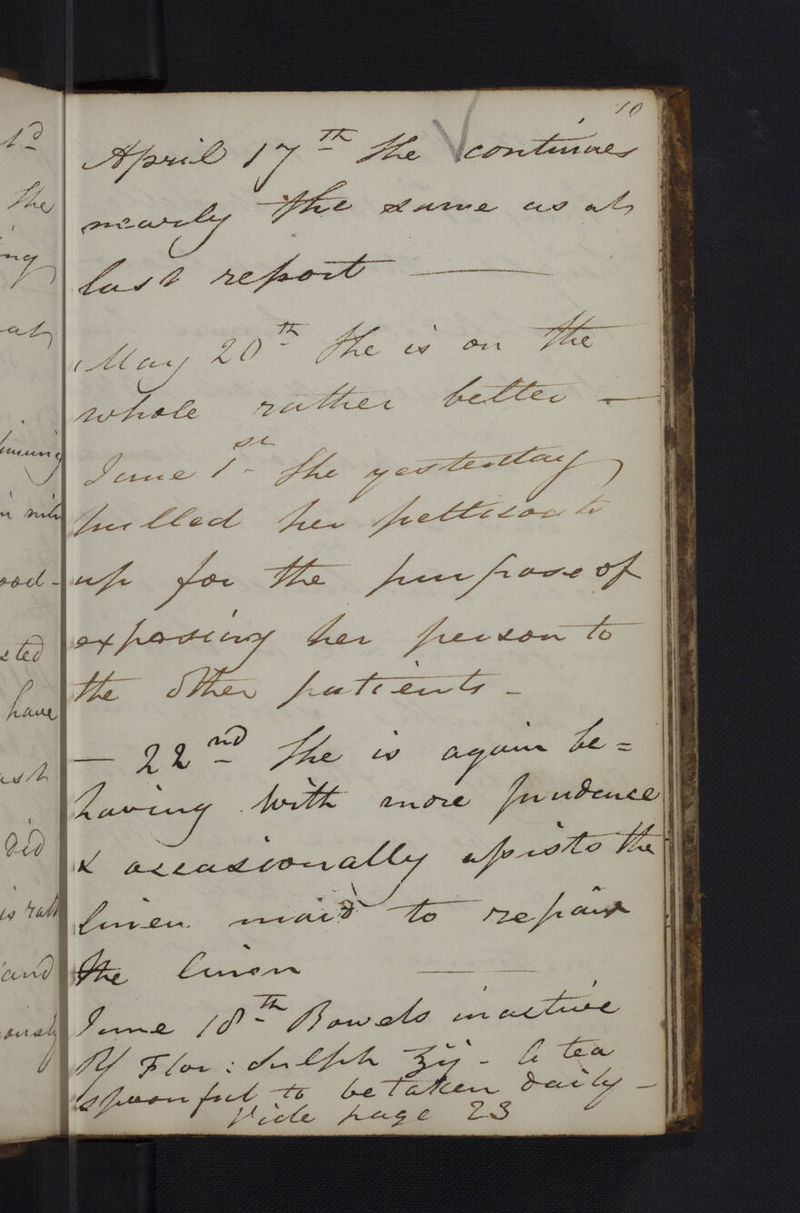 10
April 17th She continues
nearly the same as at
last report —
May 20th She is on the
whole rather better —
June 1st She yesterday
pulled her petticoats
up for the purpose of
exposing her person to
the other patients -
— 22nd She is again be=
having with more prudence
& occasionally assists the
linen maid to repair
the linen —
June 18th Bowels inactive
Rx Flor: Sulph ʒij - A tea
spoonful to be taken daily -
Vide page 23
the
ing
at
sted
have
did
and